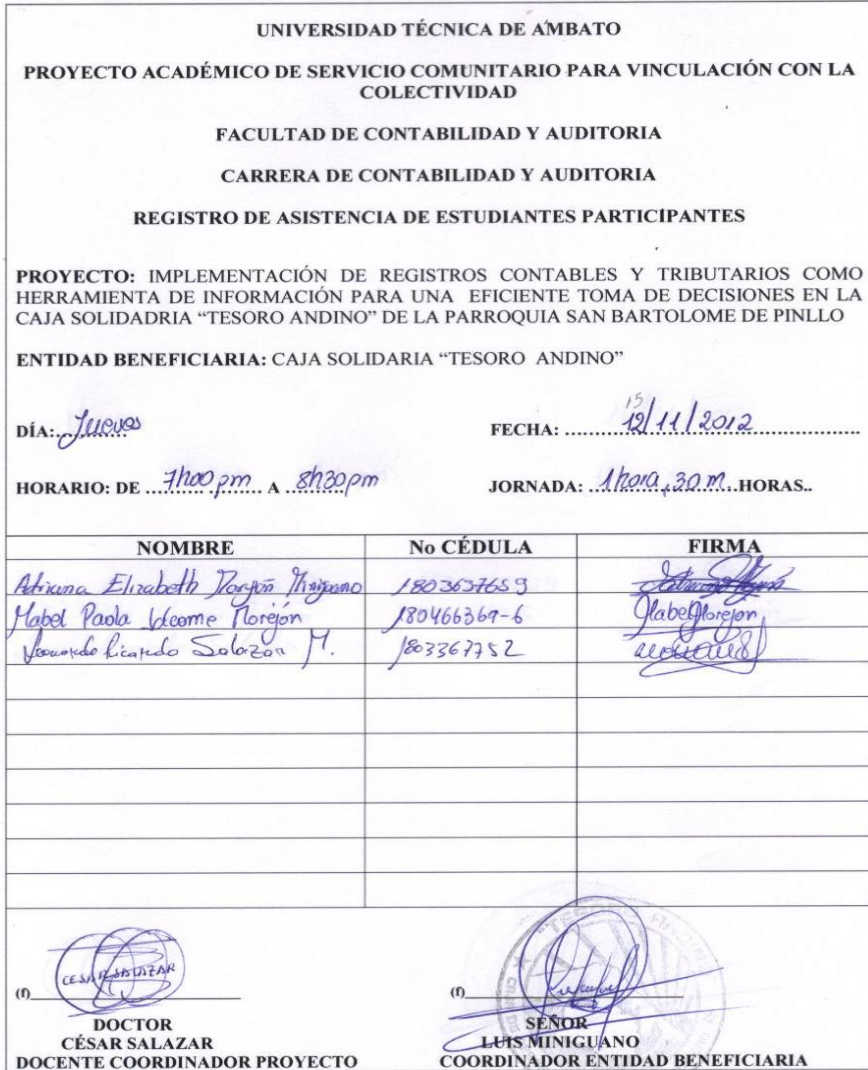 UNIVERSIDAD TÉCNICA DE AMBATO
PROYECTO ACADÉMICO DE SERVICIO COMUNITARIO PARA VINCULACIÓN CON LA
COLECTIVIDAD
FACULTAD DE CONTABILIDAD Y AUDITORIA
CARRERA DE CONTABILIDAD Y AUDITORIA
REGISTRO DE ASISTENCIA DE ESTUDIANTES PARTICIPANTES
PROYECTO: IMPLEMENTACIÓN DE REGISTROS CONTABLES Y TRIBUTARIOS COMO
HERRAMIENTA DE INFORMACIÓN PARA UNA EFICIENTE TOMA DE DECISIONES EN LA
CAJA SOLIDADRIA “TESORO ANDINO” DE LA PARROQUIA SAN BARTOLOME DE PINLLO
ENTIDAD BENEFICIARIA: CAJA SOLIDARIA “TESORO ANDINO”
DÍA: Jueves FECHA: 15 12/11/2012
HORARIO: DE 7h00 pm A 8h30pm JORNADA: 1 hora, 30 m. HORAS..
NOMBRE No CÉDULA FIRMA
Adriana Elizabeth 1803637659
Mabel Paola Morejón 180466369-6 Mabel Morejon
Leonardo Ricardo Salazar M. 1803367752
CESAR SALAZAR
(f) (f)
DOCTOR SEÑOR
CÉSAR SALAZAR LUIS MINIGUANO
DOCENTE COORDINADOR PROYECTO COORDINADOR ENTIDAD BENEFICIARIA